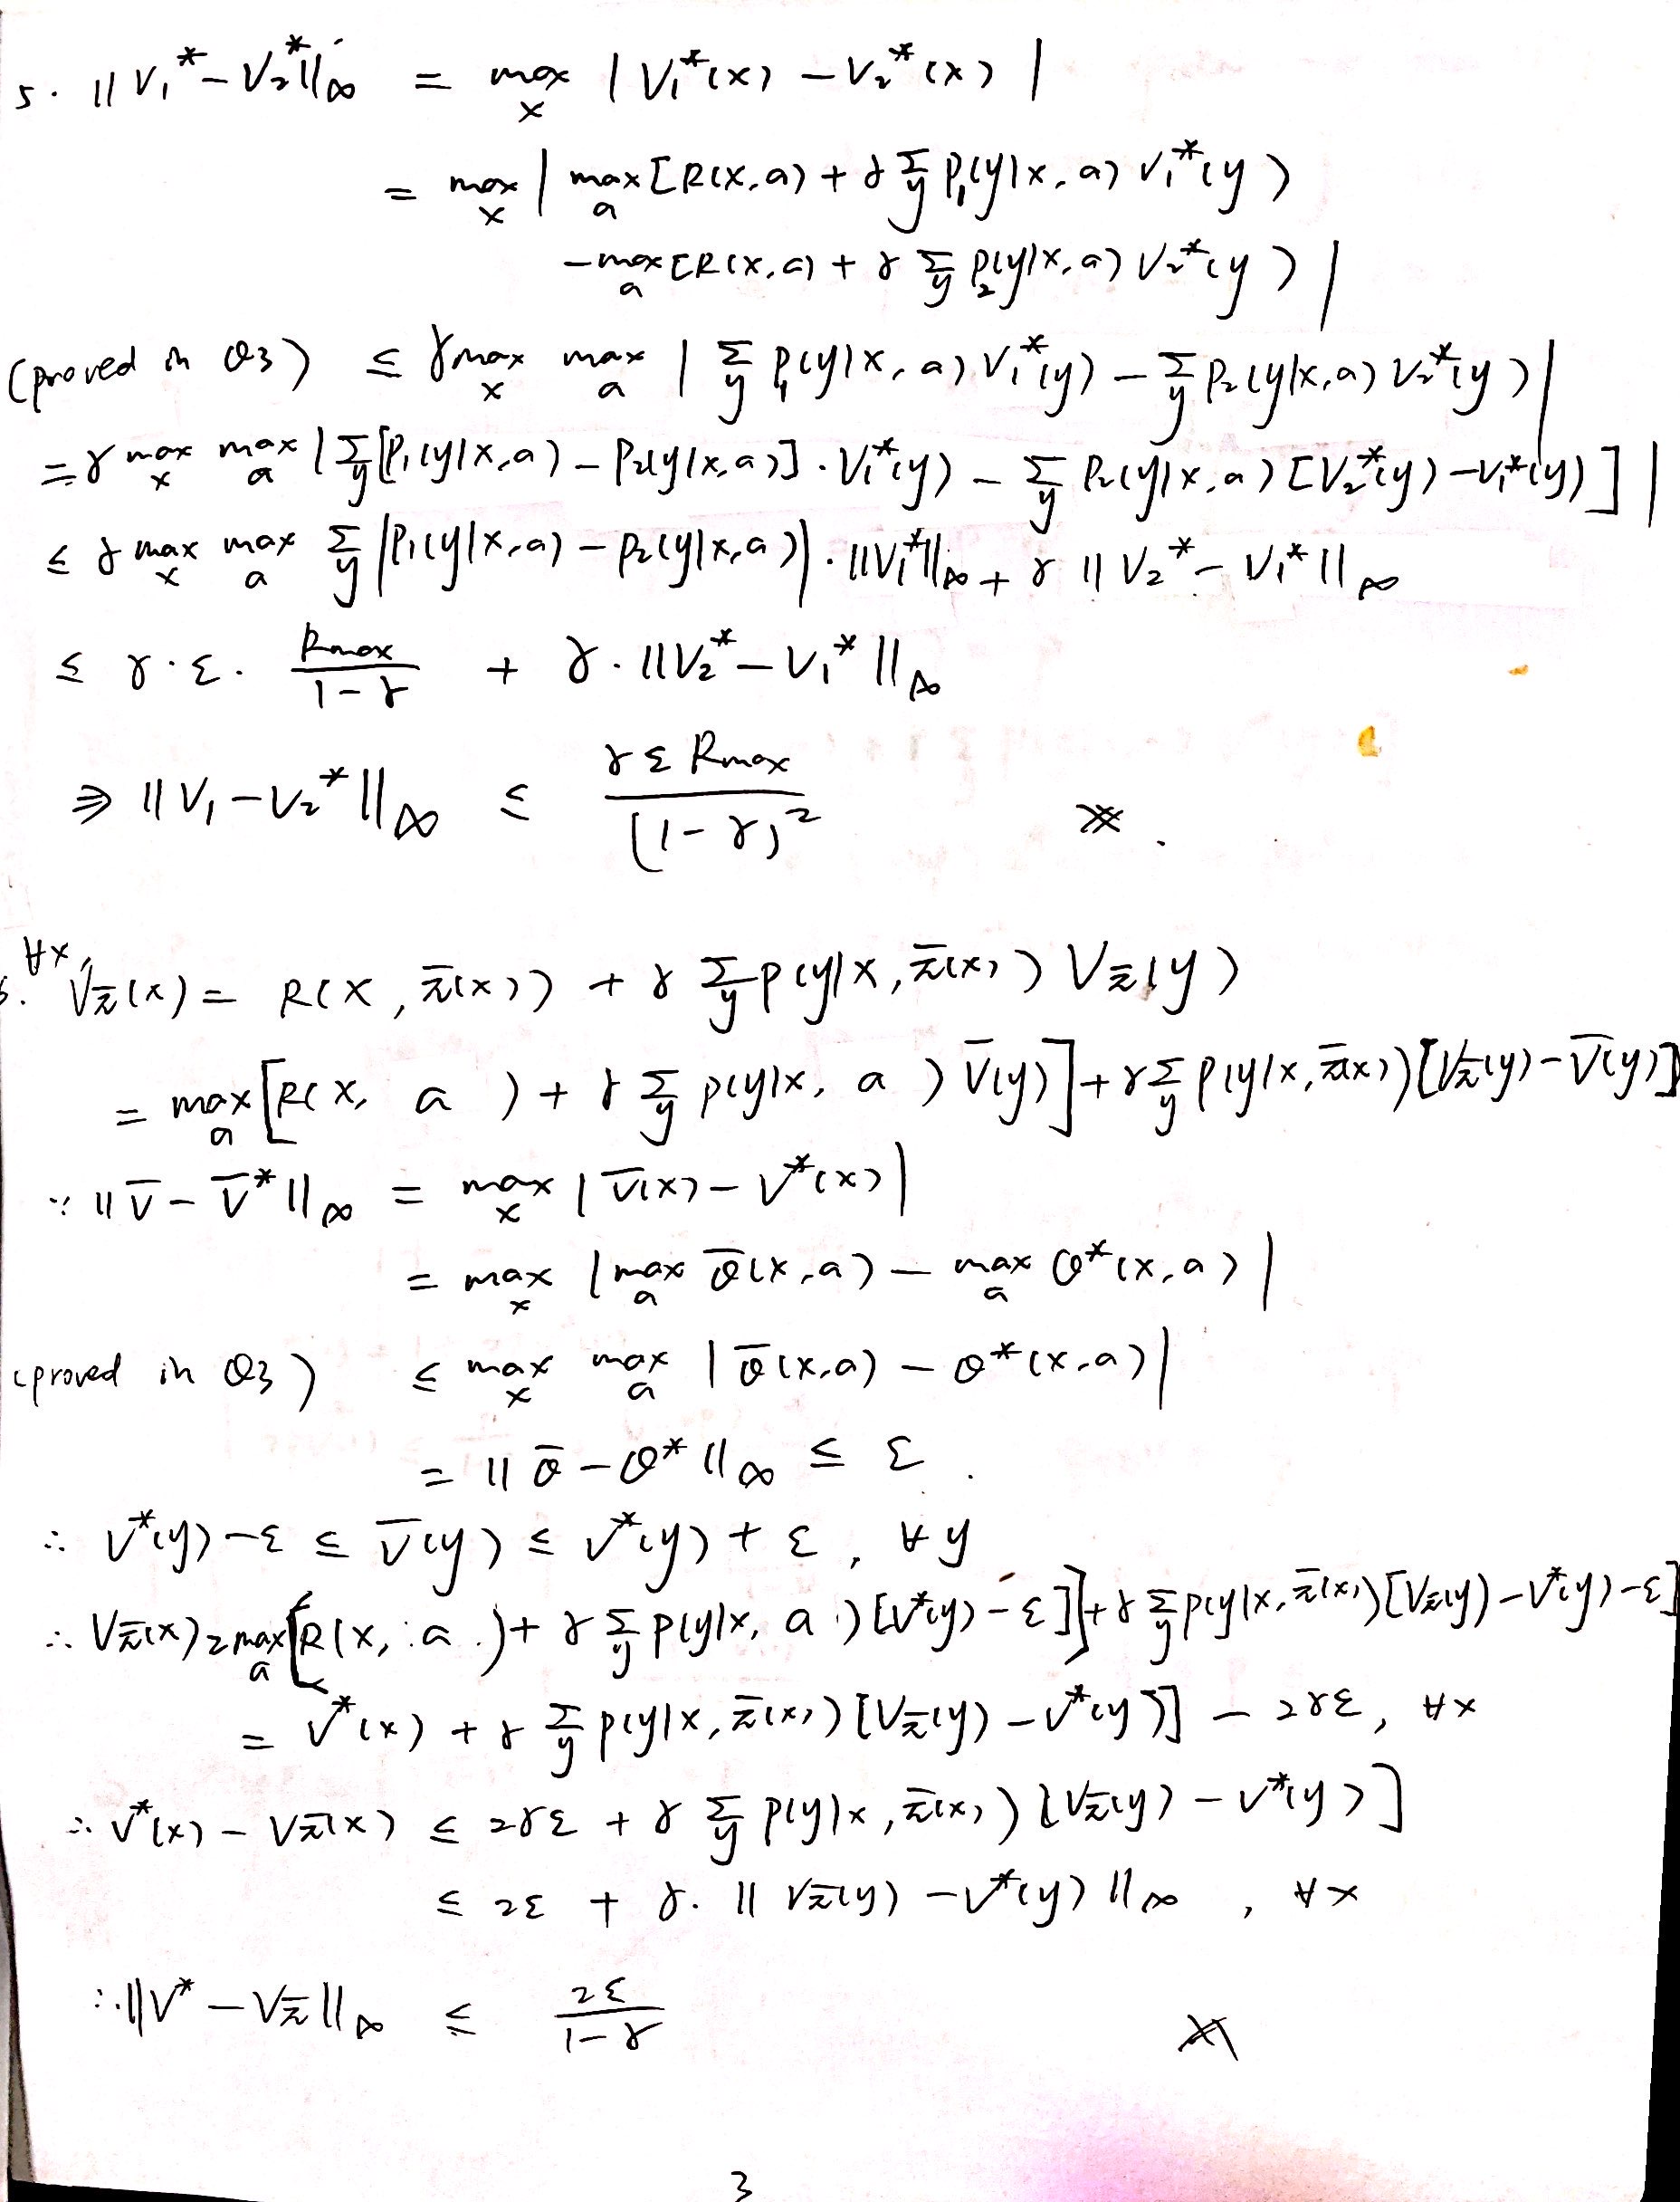 5. ‖V₁* − V₂*‖∞ = max_x | V₁*(x) − V₂*(x) |
= max_x | max_a [R(x,a) + γ Σ_y P₁(y|x,a) V₁*(y)
− max_a [R(x,a) + γ Σ_y P₂(y|x,a) V₂*(y) |
(proved in Q3) ≤ γ max_x max_a | Σ_y P₁(y|x,a) V₁*(y) − Σ_y P₂(y|x,a) V₂*(y) |
= γ max_x max_a | Σ_y [P₁(y|x,a) − P₂(y|x,a)] · V₁*(y) − Σ_y P₂(y|x,a) [V₂*(y) − V₁*(y)] |
≤ γ max_x max_a Σ_y |P₁(y|x,a) − P₂(y|x,a)| · ‖V₁*‖∞ + γ ‖V₂* − V₁*‖∞
≤ γ · ε · Rmax / (1−γ) + γ · ‖V₂* − V₁*‖∞
⇒ ‖V₁ − V₂*‖∞ ≤ γ ε Rmax / (1−γ)² ※.
6. ∀x, V_π̄(x) = R(x, π̄(x)) + γ Σ_y P(y|x, π̄(x)) V_π̄(y)
= max_a [R(x, a) + γ Σ_y P(y|x, a) V̄(y)] + γ Σ_y P(y|x, π̄(x)) [V_π̄(y) − V̄(y)]
∵ ‖V̄ − V̄*‖∞ = max_x | V̄(x) − V*(x) |
= max_x | max_a Q̄(x,a) − max_a Q*(x,a) |
(proved in Q3) ≤ max_x max_a | Q̄(x,a) − Q*(x,a) |
= ‖Q̄ − Q*‖∞ ≤ ε.
∴ V*(y) − ε ≤ V̄(y) ≤ V*(y) + ε, ∀y
∴ V_π̄(x) ≥ max_a [R(x, a) + γ Σ_y P(y|x, a) [V*(y) − ε]] + γ Σ_y P(y|x, π̄(x)) [V_π̄(y) − V*(y) − ε]
= V*(x) + γ Σ_y P(y|x, π̄(x)) [V_π̄(y) − V*(y)] − 2γε, ∀x
∴ V*(x) − V_π̄(x) ≤ 2γε + γ Σ_y P(y|x, π̄(x)) [V_π̄(y) − V*(y)]
≤ 2ε + γ · ‖V_π̄(y) − V*(y)‖∞, ∀x
∴ ‖V* − V_π̄‖∞ ≤ 2ε / (1−γ) ※
3